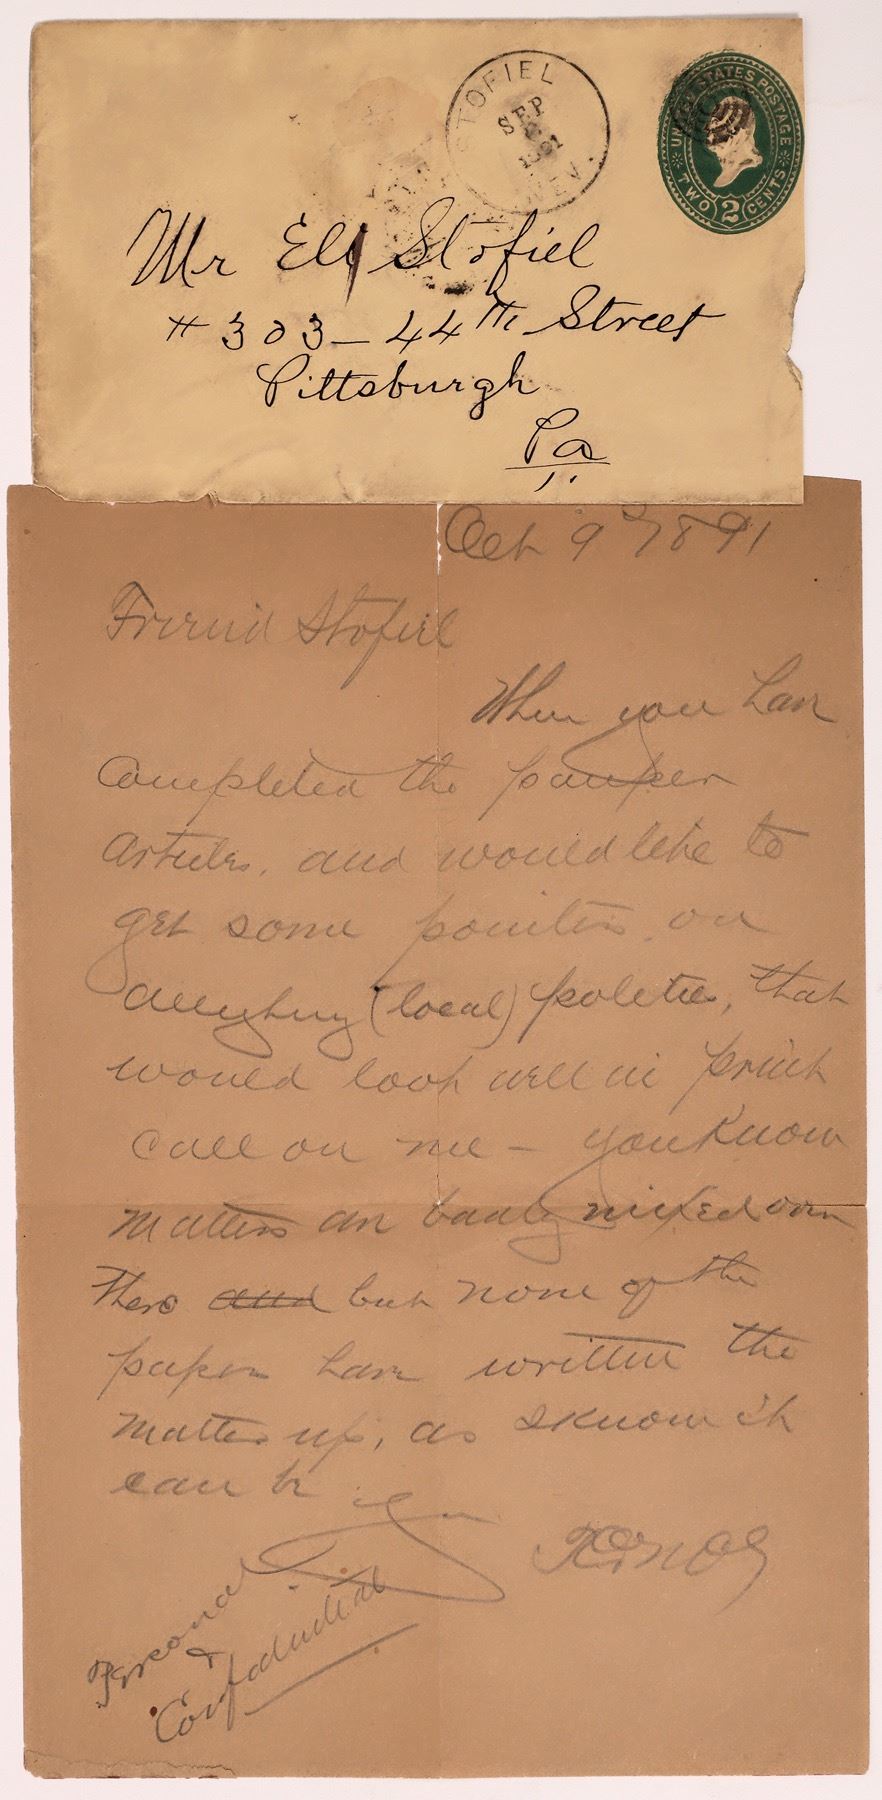 STOFIEL
SEP
1891
NEV.
UNITED STATES POSTAGE
TWO 2 CENTS
Mr Eli Stofiel
# 303 - 44th Street
Pittsburgh
Pa
Oct 9th 1891
Friend Stofiel
When you have
Completed the pauper
Articles, and would like to
get some pointers on
Allegheny (local) politics, that
would look well in print
Call on me - you Know
Matters are badly mixed over
there and but none of the
papers have written the
Matter up, as I know it
can be
Personal
&
Confidential